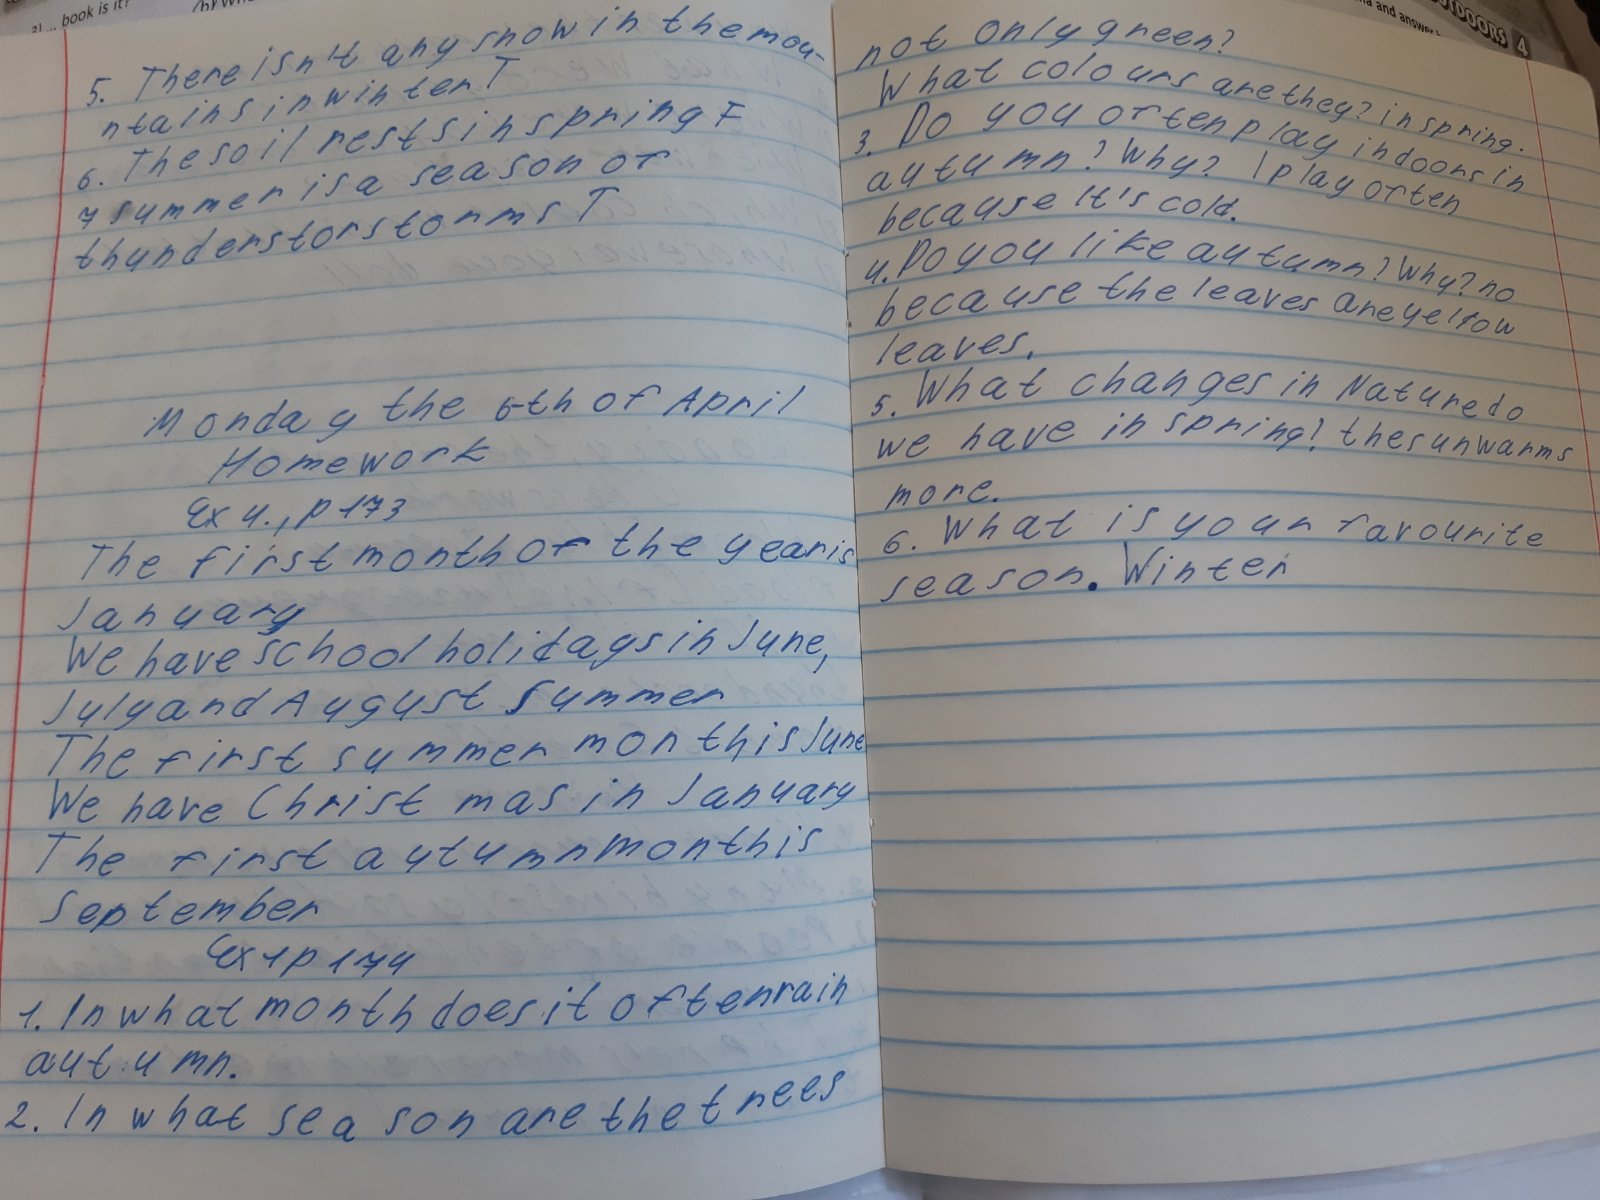 2) ... book is it?
5. There isn't any snow in the mou-
ntains in winter T
6. The soil rests in spring F
7 summer is a season of
thunderstorstorms T
Monday the 6th of April
Homework
Ex 4., p 173
The first month of the year is
January
We have school holidays in June,
July and August summer
The first summer month is June
We have Christ mas in January
The first autumn month is
September
Ex 1 p 174
1. In what month does it often rain
autumn.
2. In what season are the trees
OUTDOORS 4
and answer
not only green?
What colours are they? in spring.
3. Do you often play indoors in
autumn? Why? I play often
because it's cold.
4. Do you like autumn? Why? no
because the leaves are yellow
leaves.
5. What changes in Nature do
we have in spring? the sun warms
more.
6. What is your favourite
season. Winter